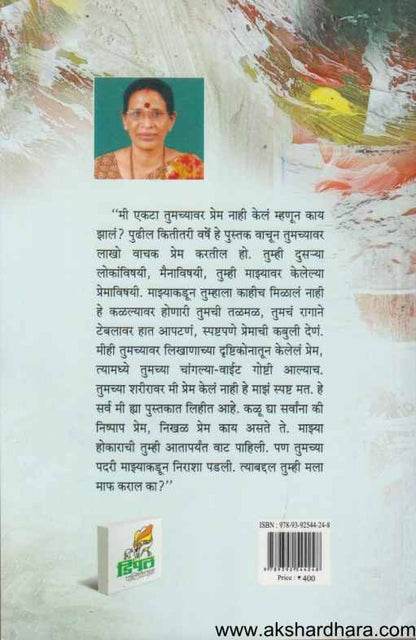 "मी एकटा तुमच्यावर प्रेम नाही केलं म्हणून काय
झालं? पुढील कितीतरी वर्षे हे पुस्तक वाचून तुमच्यावर
लाखो वाचक प्रेम करतील हो. तुम्ही दुसऱ्या
लोकांविषयी, मैनाविषयी, तुम्ही माझ्यावर केलेल्या
प्रेमाविषयी. माझ्याकडून तुम्हाला काहीच मिळालं नाही
हे कळल्यावर होणारी तुमची तळमळ, तुमचं रागाने
टेबलावर हात आपटणं, स्पष्टपणे प्रेमाची कबुली देणं.
मीही तुमच्यावर लिखाणाच्या दृष्टिकोनातून केलेलं प्रेम,
त्यामध्ये तुमच्या चांगल्या-वाईट गोष्टी आल्याच.
तुमच्या शरीरावर मी प्रेम केलं नाही हे माझं स्पष्ट मत. हे
सर्व मी ह्या पुस्तकात लिहीत आहे. कळू द्या सर्वांना की
निष्पाप प्रेम, निखळ प्रेम काय असते ते. माझ्या
होकाराची तुम्ही आतापर्यंत वाट पाहिली. पण तुमच्या
पदरी माझ्याकडून निराशा पडली. त्याबद्दल तुम्ही मला
माफ कराल का?"
डिंपल
पब्लिकेशन
ISBN : 978-93-92544-24-8
9 789392 544248
Price : ₹ 400
www.akshardhara.com